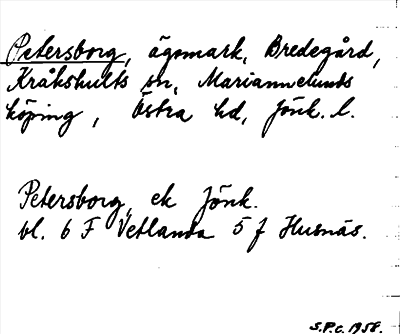 Petersborg, ägomark, Bredegård,
Kråkshults sn, Mariannelunds
köping, Östra hd, Jönk. l.
Petersborg, ek Jönk.
bl. 6 F Vetlanda 5 f Husnäs.
S.P.C. 1958.